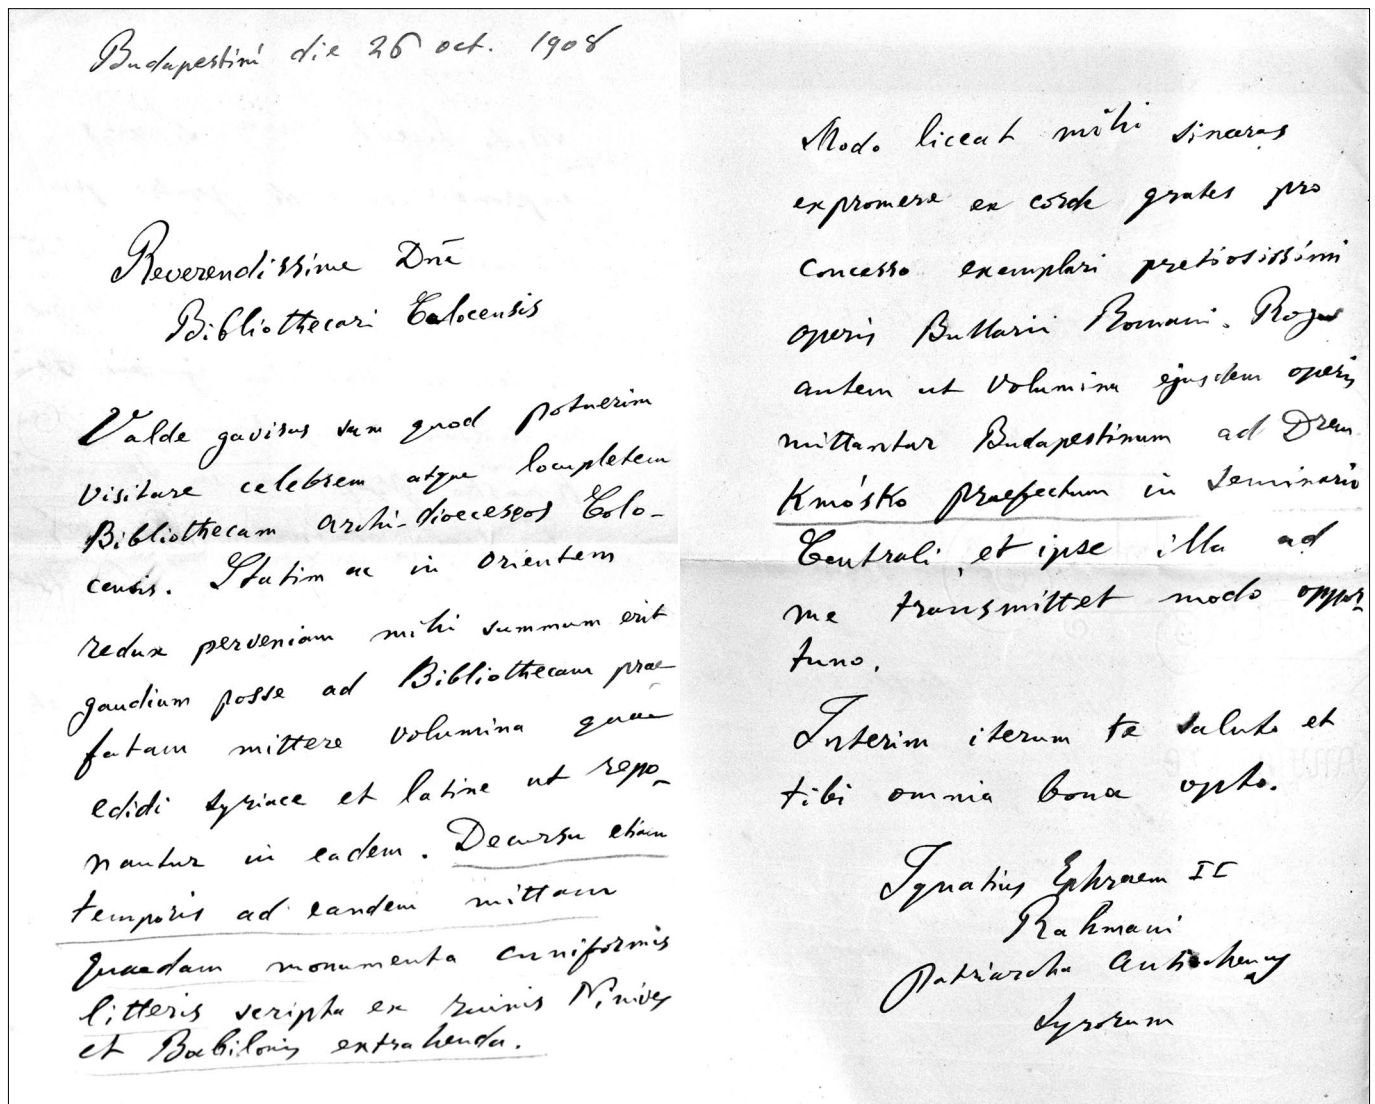 Budapestini die 26 oct. 1908
Reverendissime Dnē
Bibliothecari Colocensis
Valde gavisus sum quod potuerim
visitare celebrem atque locupletem
Bibliothecam archi-dioeceseos Colo-
censis. Statim ac in orientem
redux perveniam mihi summum erit
gaudium posse ad Bibliothecam prae-
fatam mittere volumina quae
edidi syriace et latine ut repo-
nantur in eadem. Decursu etiam
temporis ad eandem mittam
quaedam monumenta cuniformis
litteris scripta ex ruinis Ninives
et Babilonis extrahenda.
Modo liceat mihi sinceras
expromere ex corde grates pro
concesso exemplari pretiosissimi
operis Bullarii Romani. Rogo
autem ut volumina ejusdem operis
mittantur Budapestinum ad Drem
Kmósko praefectum in Seminario
Centrali, et ipse illa ad
me transmittet modo oppor-
tuno.
Interim iterum te saluto et
tibi omnia bona opto.
Ignatius Ephraem II
Rahmani
Patriarcha Antiochenus
Syrorum